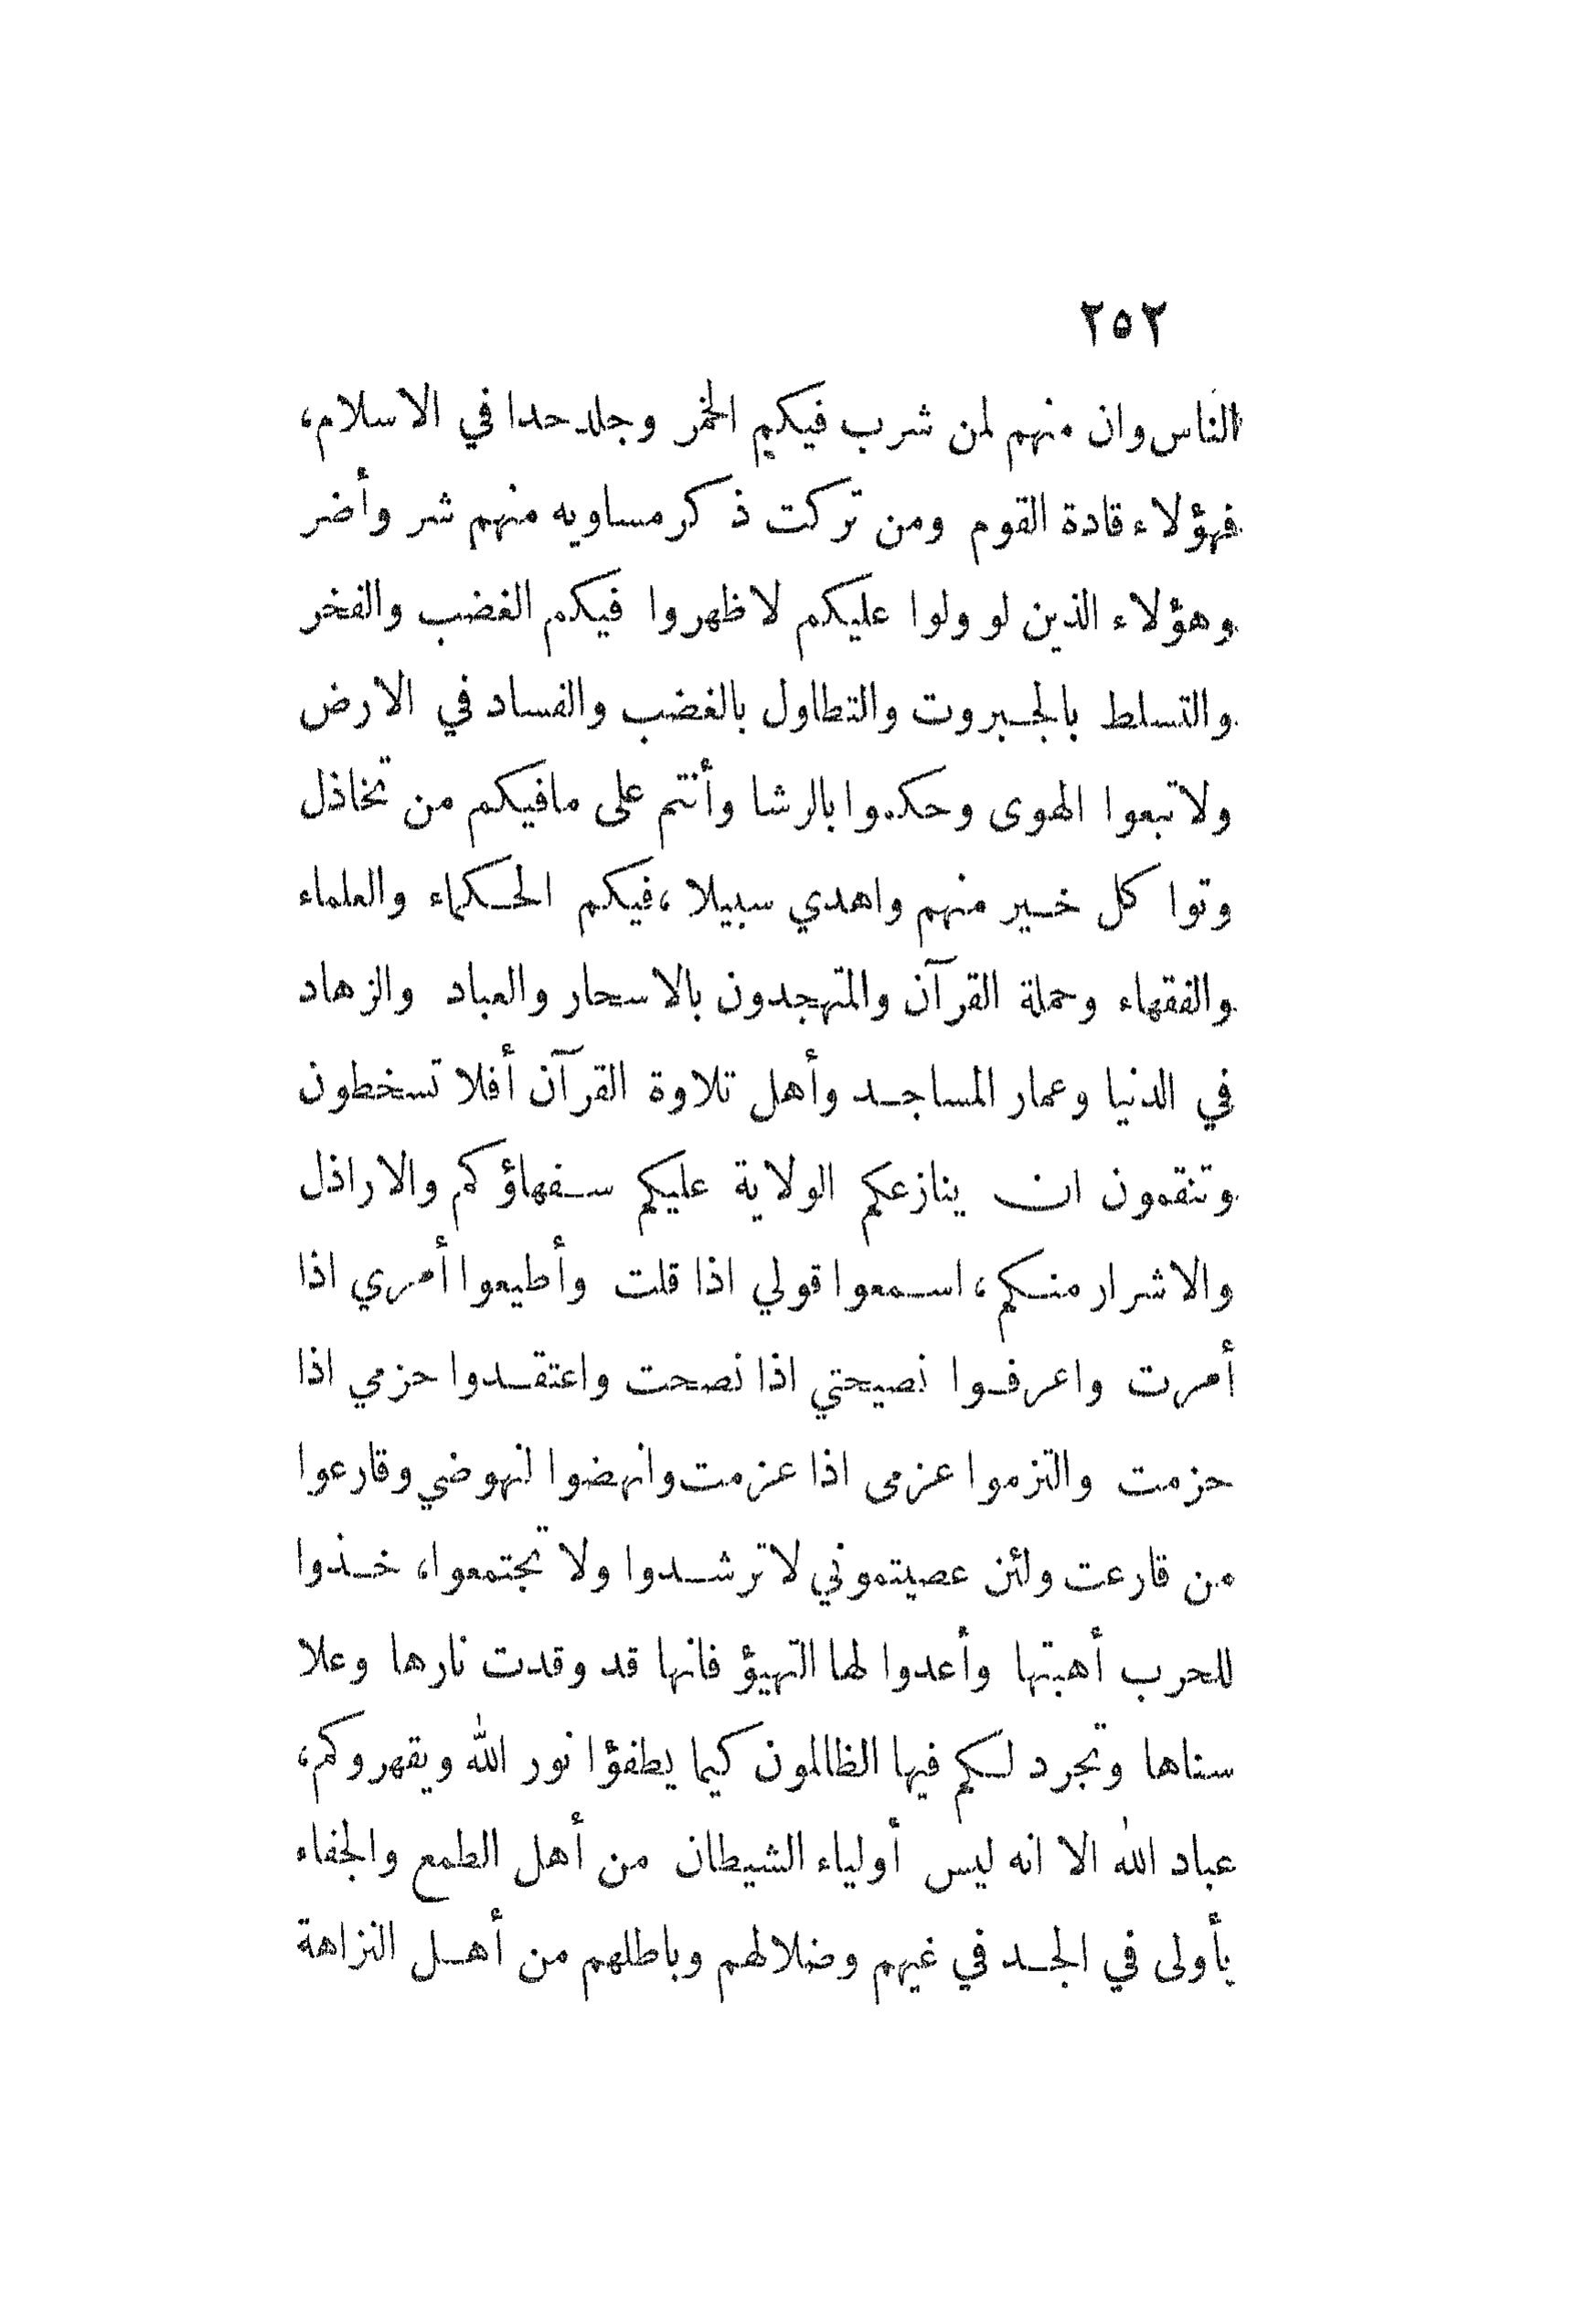 ٢٥٢
الناس وان منهم لمن شرب فيكم الخمر وجلد حدا في الاسلام،
فهؤلاء قادة القوم ومن تركت ذكر مساويه منهم شر وأضر
وهؤلاء الذين لو ولوا عليكم لاظهروا فيكم الغضب والفخر
والتسلط بالجبروت والتطاول بالغضب والفساد في الارض
ولاتبعوا الهوى وحكموا بالرشا وأنتم على مافيكم من تخاذل
وتوا كل خير منهم واهدي سبيلا، فيكم الحكماء والعلماء
والفقهاء وحملة القرآن والمتهجدون بالاسحار والعباد والزهاد
في الدنيا وعمار المساجد وأهل تلاوة القرآن أفلا تسخطون
وتنقمون ان ينازعكم الولاية عليكم سفهاؤكم والاراذل
والاشرار منكم، اسمعوا قولي اذا قلت وأطيعوا أمري اذا
أمرت واعرفوا نصيحتي اذا نصحت واعتقدوا حزمي اذا
حزمت والتزموا عزمى اذا عزمت وانهضوا لنهوضي وقارعوا
من قارعت ولئن عصيتموني لا ترشدوا ولا تجتمعوا، خذوا
للحرب أهبتها وأعدوا لها التهيؤ فانها قد وقدت نارها وعلا
سناها وتجرد لكم فيها الظالمون كيما يطفؤا نور الله ويقهروكم،
عباد الله الا انه ليس أولياء الشيطان من أهل الطمع والجفاء
بأولى في الجد في غيهم وضلالهم وباطلهم من أهل النزاهة